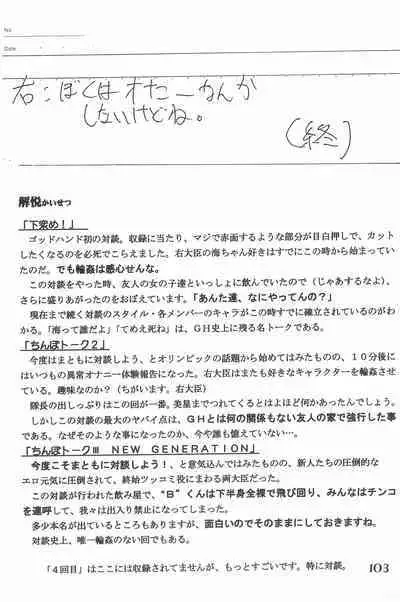 No
Date
右：ぼくはオナニーなんか
しないけどね。
(終)
解悦かいせつ
「下衆め！」
ゴッドハンド初の対談。収録に当たり、マジで赤面するような部分が目白押しで、カット
したくなるのを必死でこらえました。右大臣の海ちゃん好きはすでにこの時から始まってい
たのだ。でも輪姦は感心せんな。
この対談をやった時、友人の女の子達といっしょに飲んでいたので（じゃあするなよ）、
さらに盛りあがったのをおぼえています。「あんた達、なにやってんの？」
現在まで続く対談のスタイル・各メンバーのキャラがこの時すでに確立されているのがわ
かる。「海って誰だよ」「てめえ死ね」は、ＧＨ史上に残る名トークである。
「ちんぽトーク２」
今度はまともに対談しよう、とオリンピックの話題から始めてはみたものの、１０分後に
はいつもの異常オナニー体験報告になった。右大臣はまたも好きなキャラクターを輪姦させ
ている。趣味なのか？（ちがいます。右大臣）
隊長の出しっぷりはこの回が一番。美星までつれてくるとはよほど何かあったんでしょう。
しかしこの対談の最大のヤバイ点は、ＧＨとは何の関係もない友人の家で強行した事
である。なぜそのような事になったのか、今や誰も憶えていない…。
「ちんぽトークⅢ　ＮＥＷ　ＧＥＮＥＲＡＴＩＯＮ」
今度こそまともに対談しよう！、と意気込んではみたものの、新人たちの圧倒的な
エロ元気に圧倒されて、終始ツッコミ役にまわる両大臣だった。
この対談が行われた飲み屋で、“Ｂ”くんは下半身全裸で飛び回り、みんなはチンコ
を連呼して、我々は出入り禁止になってしまった。
多少本名が出ているところもありますが、面白いのでそのままにしておきますね。
対談史上、唯一輪姦のない回でもある。
「４回目」はここには収録されてませんが、もっとすごいです。特に対談。
103